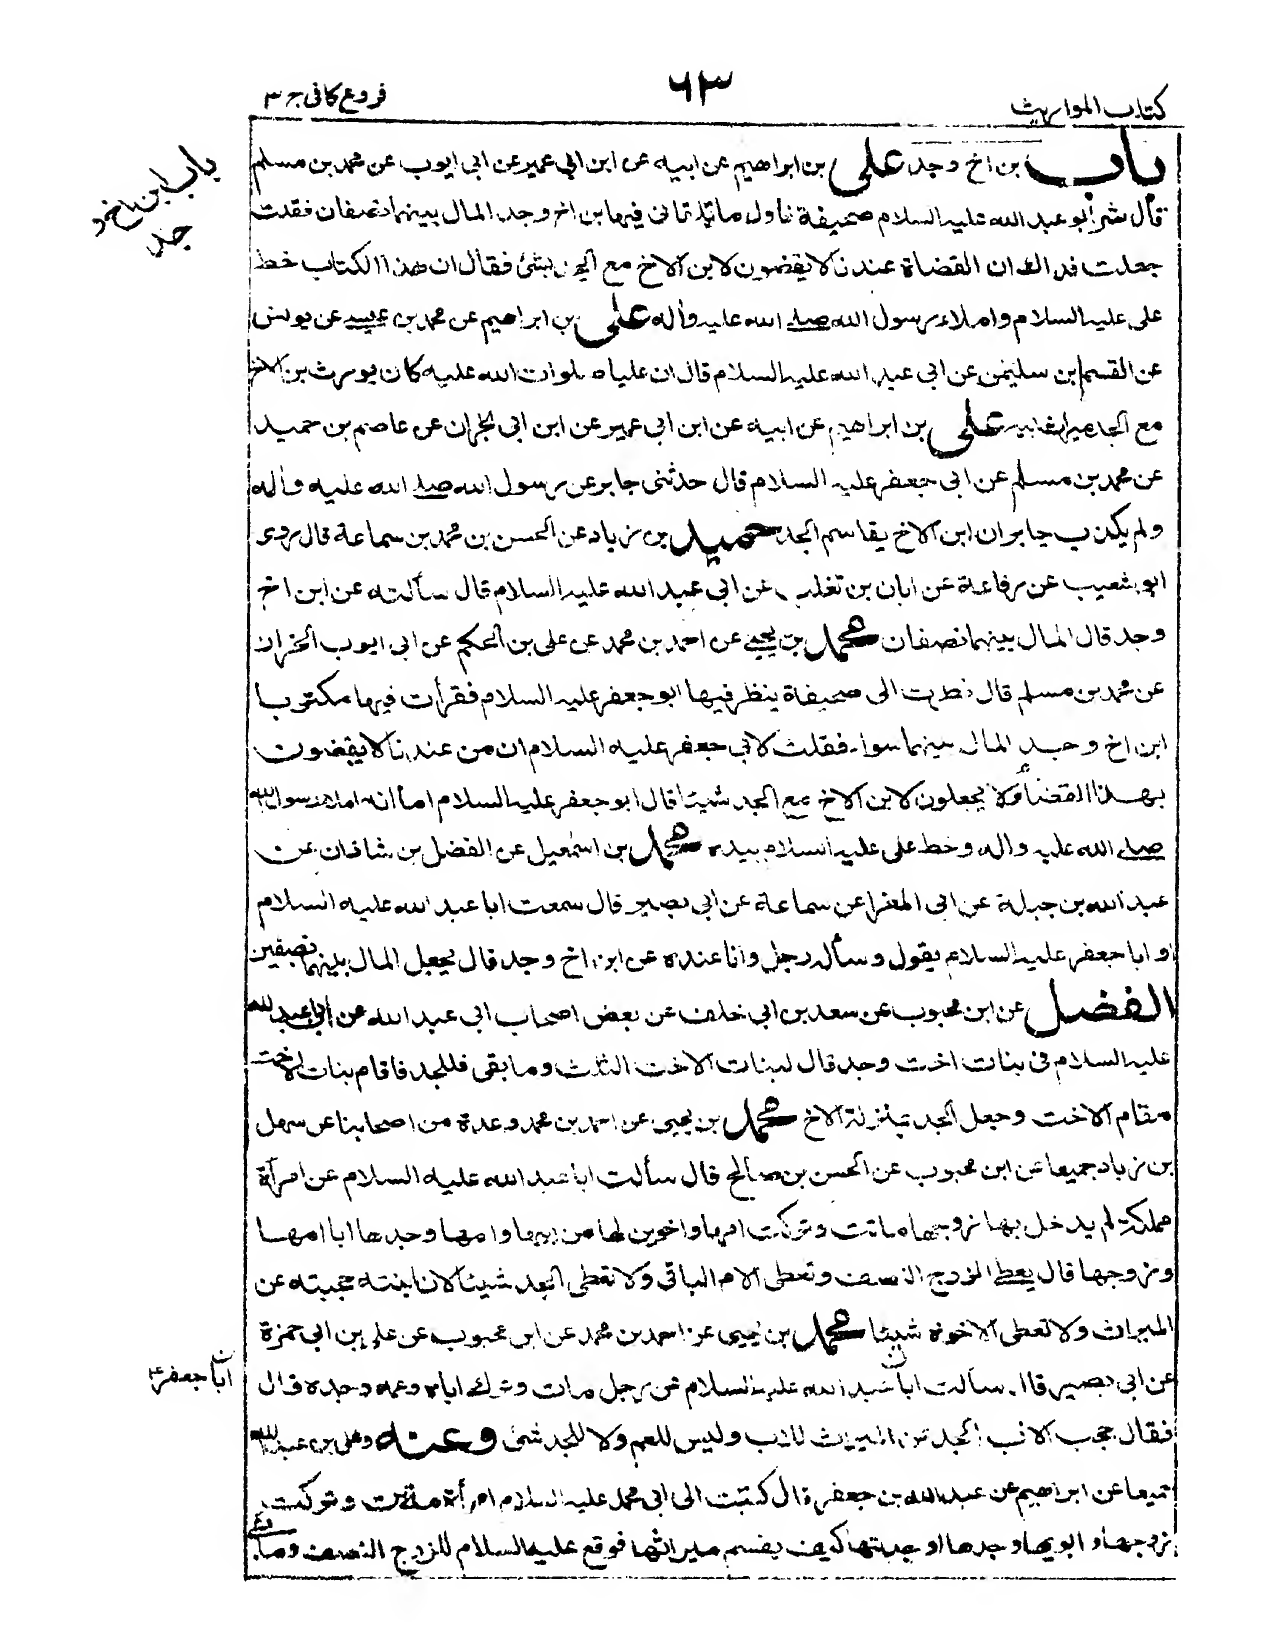 كتاب المواريث
٦٣
فروع كافى ج ٣
باب ابن اخ و
جد
باب بن اخ وجد على بن ابراهيم عن ابيه عن ابن ابي عمير عن ابى ايوب عن محمد بن مسلم
قال نشر ابو عبد الله عليه السلام صحيفة فاول ما تلقانى فيها بن اخ وجد المال بينهما نصفان فقلت
جعلت فداك ان القضاة عندنا لا يقضون لابن الاخ مع الجد بشئ فقال ان هذا الكتاب خط
على عليه السلام واملاء رسول الله صلى الله عليه وآله على بن ابراهيم عن محمد بن عيسى عن يونس
عن القسم بن سليمن عن ابى عبد الله عليه السلام قال ان عليا صلوات الله عليه كان يورث بن الاخ
مع الجد ميراث ابيه على بن ابراهيم عن ابيه عن ابن ابى عمير عن ابن ابى نجران عن عاصم بن حميد
عن محمد بن مسلم عن ابى جعفر عليه السلام قال حدثنى جابر عن رسول الله صلى الله عليه وآله
ولم يكذب جابر ان ابن الاخ يقاسم الجد حميد بن زياد عن الحسن بن محمد بن سماعة قال روى
ابو شعيب عن رفاعة عن ابان بن تغلب عن ابى عبد الله عليه السلام قال سألته عن ابن اخ
وجد قال المال بينهما نصفان محمد بن يحيى عن احمد بن محمد عن على بن الحكم عن ابى ايوب الخزان
عن محمد بن مسلم قال نظرت الى صحيفة ينظر فيها ابو جعفر عليه السلام فقرأت فيها مكتوبا
ابن اخ وجد المال بينهما سواء فقلت لابى جعفر عليه السلام ان من عندنا لا يقضون
بهذا القضاء ولا يجعلون لابن الاخ مع الجد شيئا قال ابو جعفر عليه السلام اما انه املاء رسول الله
صلى الله عليه وآله وخط على عليه السلام بيده محمد بن اسمعيل عن الفضل بن شاذان عن
عبد الله بن جبلة عن ابى المغرا عن سماعة عن ابى بصير قال سمعت ابا عبد الله عليه السلام
او ابا جعفر عليه السلام يقول وسأله رجل وانا عنده عن ابن اخ وجد قال يجعل المال بينهما نصفين
الفضل عن ابن محبوب عن سعد بن ابي خلف عن بعض اصحاب ابى عبد الله عن ابى عبد الله
عليه السلام فى بنات اخت وجد قال لبنات الاخت الثلث وما بقى فللجد فاقام بنات الاخت
مقام الاخت وجعل الجد بمنزلة الاخ محمد بن يحيى عن احمد بن محمد وعدة من اصحابنا عن سهل
بن زياد جميعا عن ابن محبوب عن الحسن بن صالح قال سألت ابا عبد الله عليه السلام عن امرأة
مملكة لم يدخل بها زوجها ماتت وتركت امها واخوين لها من ابيها وامها وجدها ابا امها
وزوجها قال يعطى الزوج النصف وتعطى الام الباقى ولا تعطى الجد شيئا لان ابنته حجبته عن
الميراث ولا تعطى الاخوة شيئا محمد بن يحيى عن احمد بن محمد عن ابن محبوب عن على بن ابى حمزة
عن ابى بصير قال سألت ابا عبد الله عليه السلام عن رجل مات وترك اباه وعمه وجده قال
ن ابا جعفر ع
فقال حجب الاب الجد عن الميراث للاب وليس للعم ولا للجد شئ وعنه وعلى بن عبد الله
جميعا عن ابراهيم عن عبد الله بن جعفر قال كتبت الى ابى محمد عليه السلام امرأة ماتت وتركت
زوجها وابويها وجدها او جدتها كيف يقسم ميراثها فوقع عليه السلام للزوج النصف وما